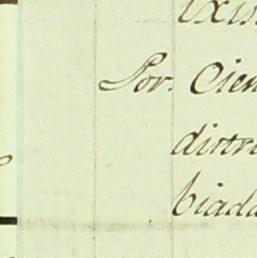 Exis
Por. Cien
distri
biada